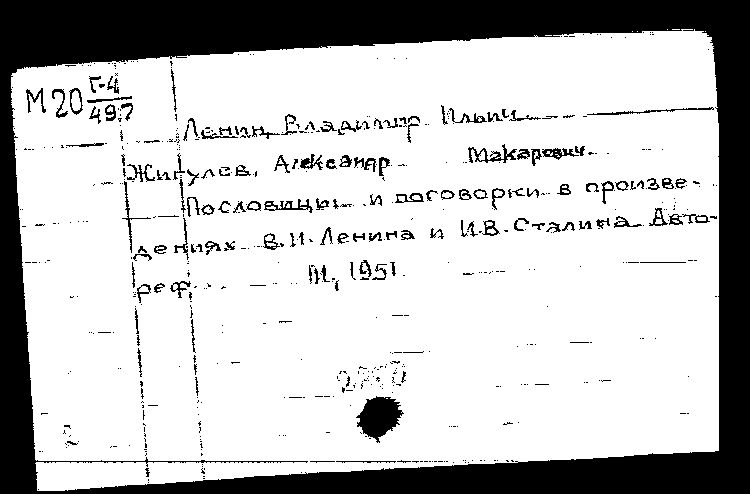 М20 Г-4
497
Ленин, Владимир Ильич
Жигулев, Александр Макарович.
Пословицы и поговорки в произве-
дениях В.И. Ленина и И.В. Сталина. Авто-
реф. М., 1951.
2